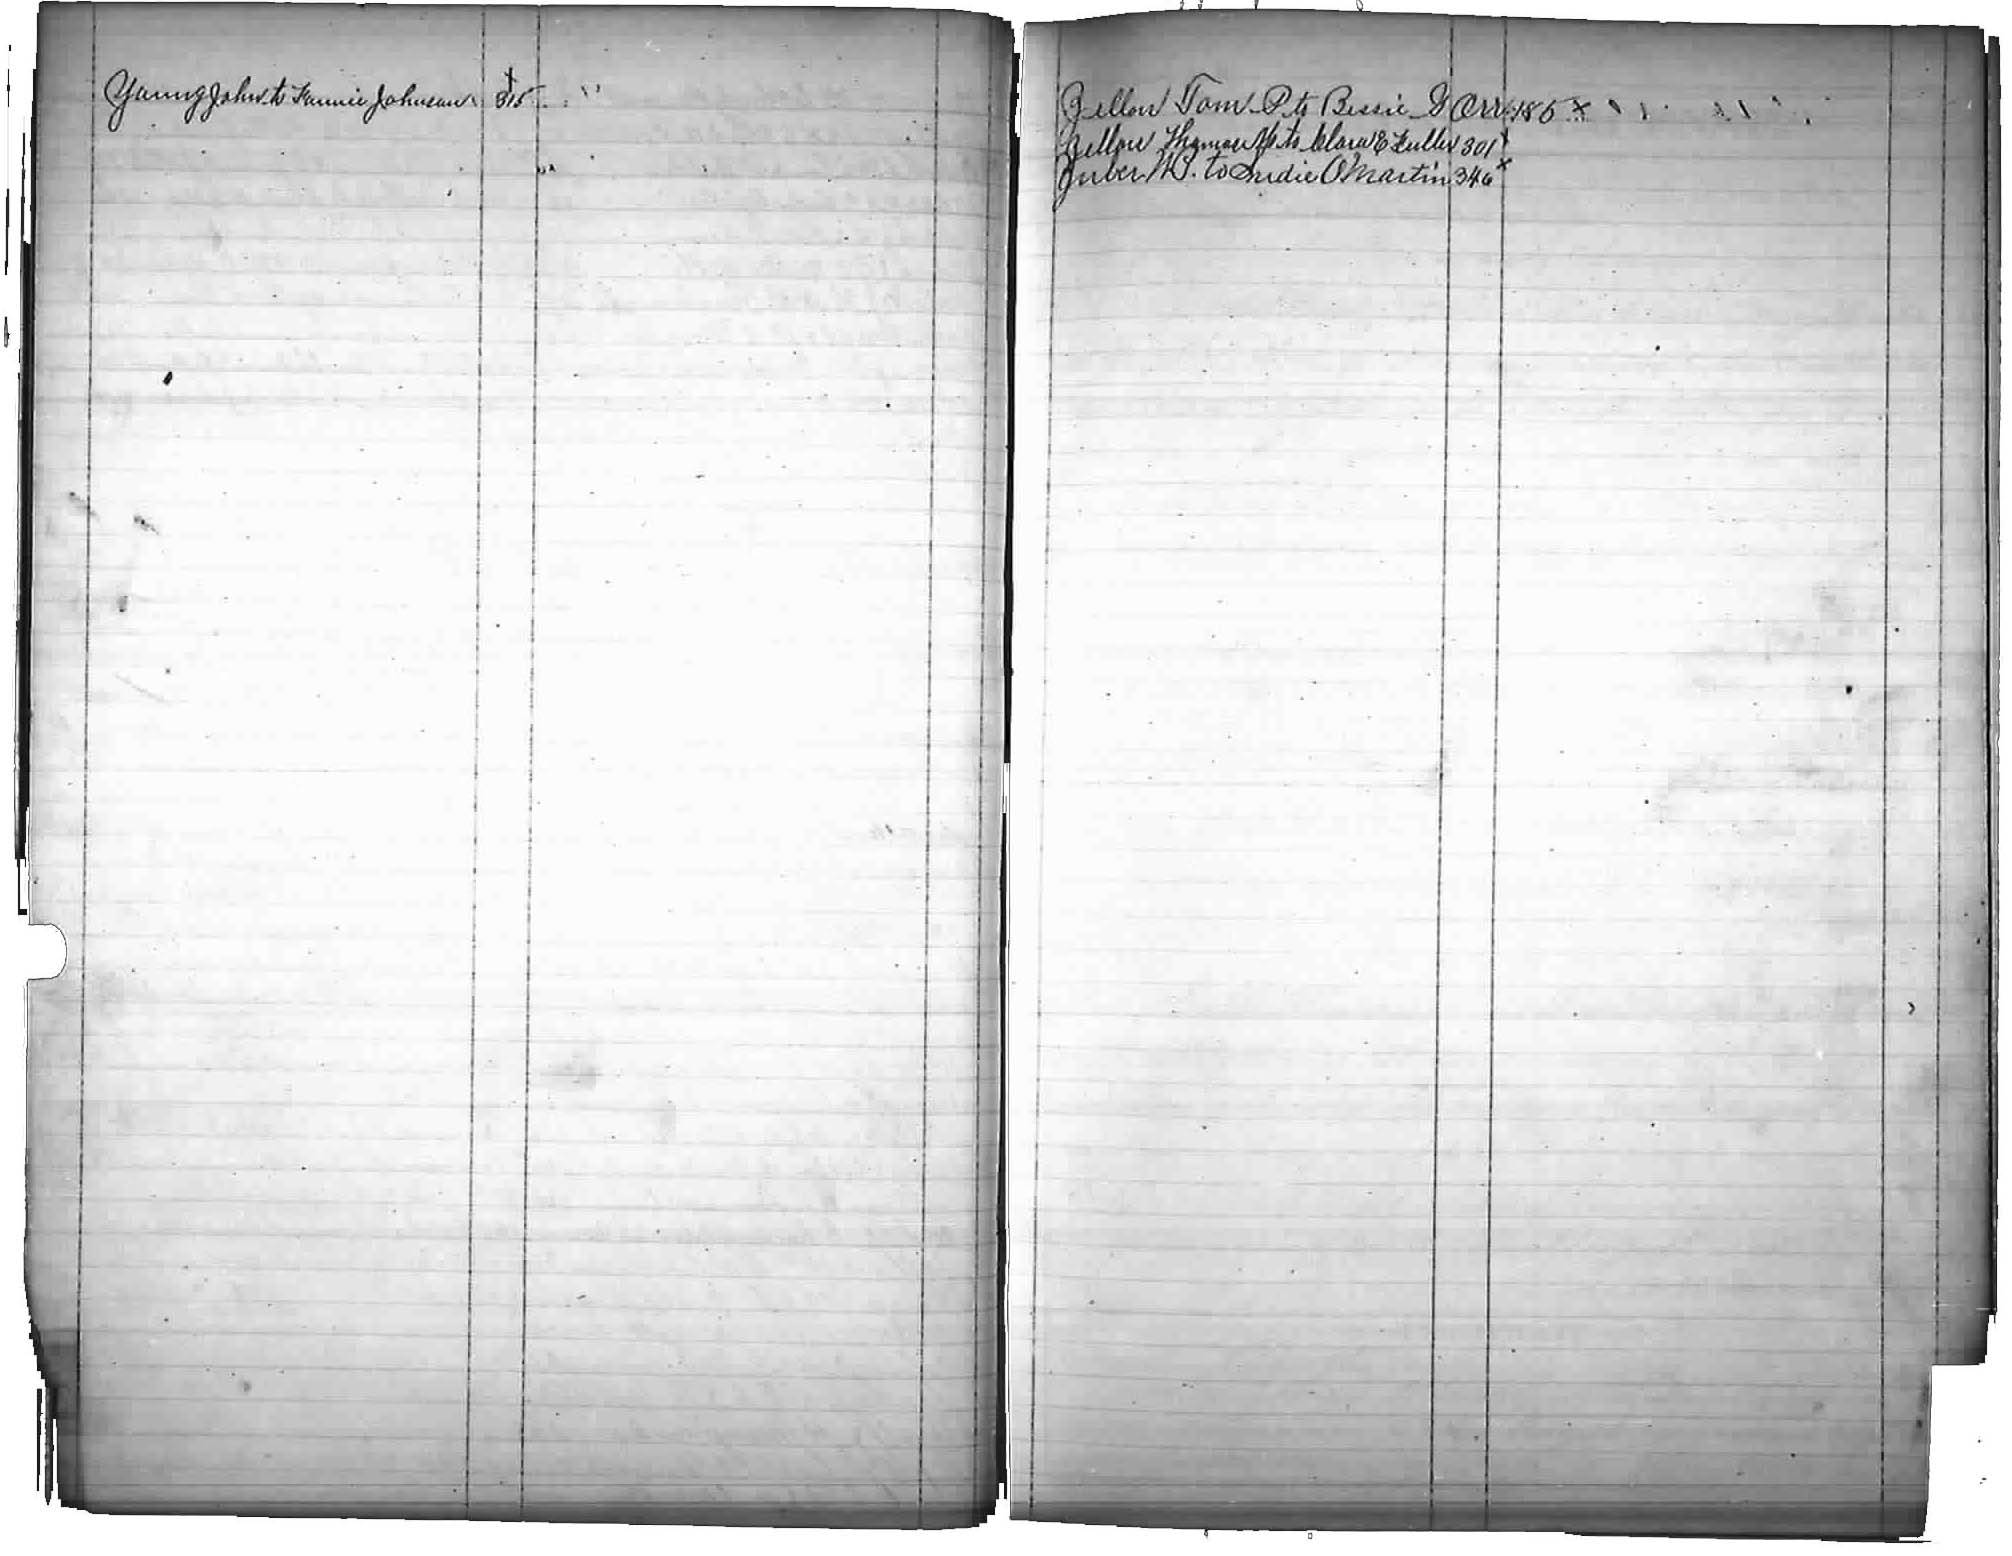 Young John to Fannie Johnson 315 x
Zellar Tom P to Bessie G Orr 185 x
Zellar Thomas to Clara E Fuller 301 x
Zuber W. to O Martin 346 x